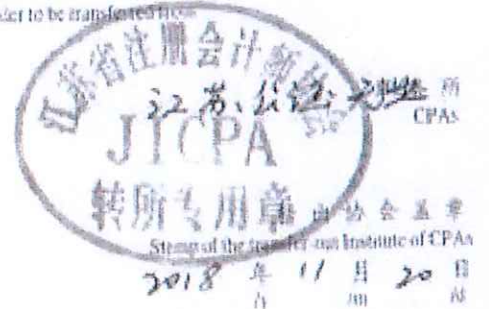 to be transferred from
江苏省注册会计师协会
江苏公证天业 所
CPAs
JICPA
转所专用章
出协会盖章
Stamp of the transfer-out Institute of CPAs
2018 年 11 月 20 日
/y /m /d